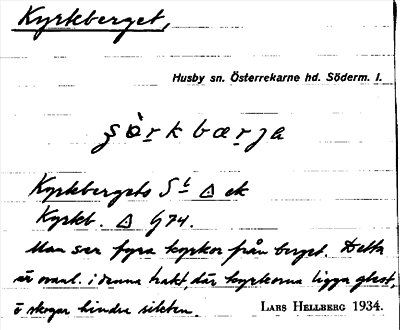 Kyrkberget,
Husby sn. Österrekarne hd. Söderm. l.
Kyrkbergets
Kyrkb. △ G74.
Man ser fyra kyrkor från berget. Detta
är ovanl. i denna trakt, där kyrkorna ligga glest,
o skogar hindra sikten.
LARS HELLBERG 1934.